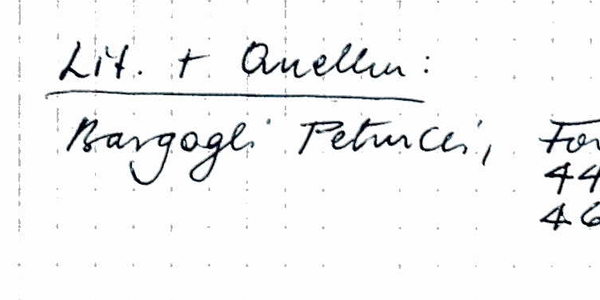 Lit. + Quellen:
Bargogli Petrucci, For
44
46